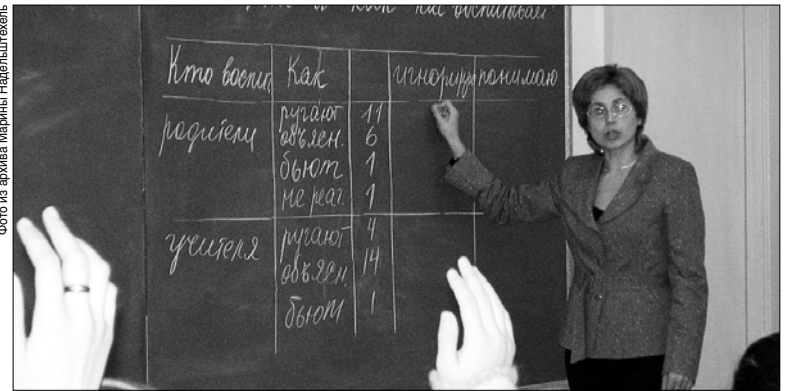 Фото из архива Марины Надельштехель
и как нас воспитывают
Кто воспит Как игнорирую понимаю
родители ругают 11
объясн. 6
бьют 1
не реаг. 1
учителя ругают 4
объясн. 14
бьют 1